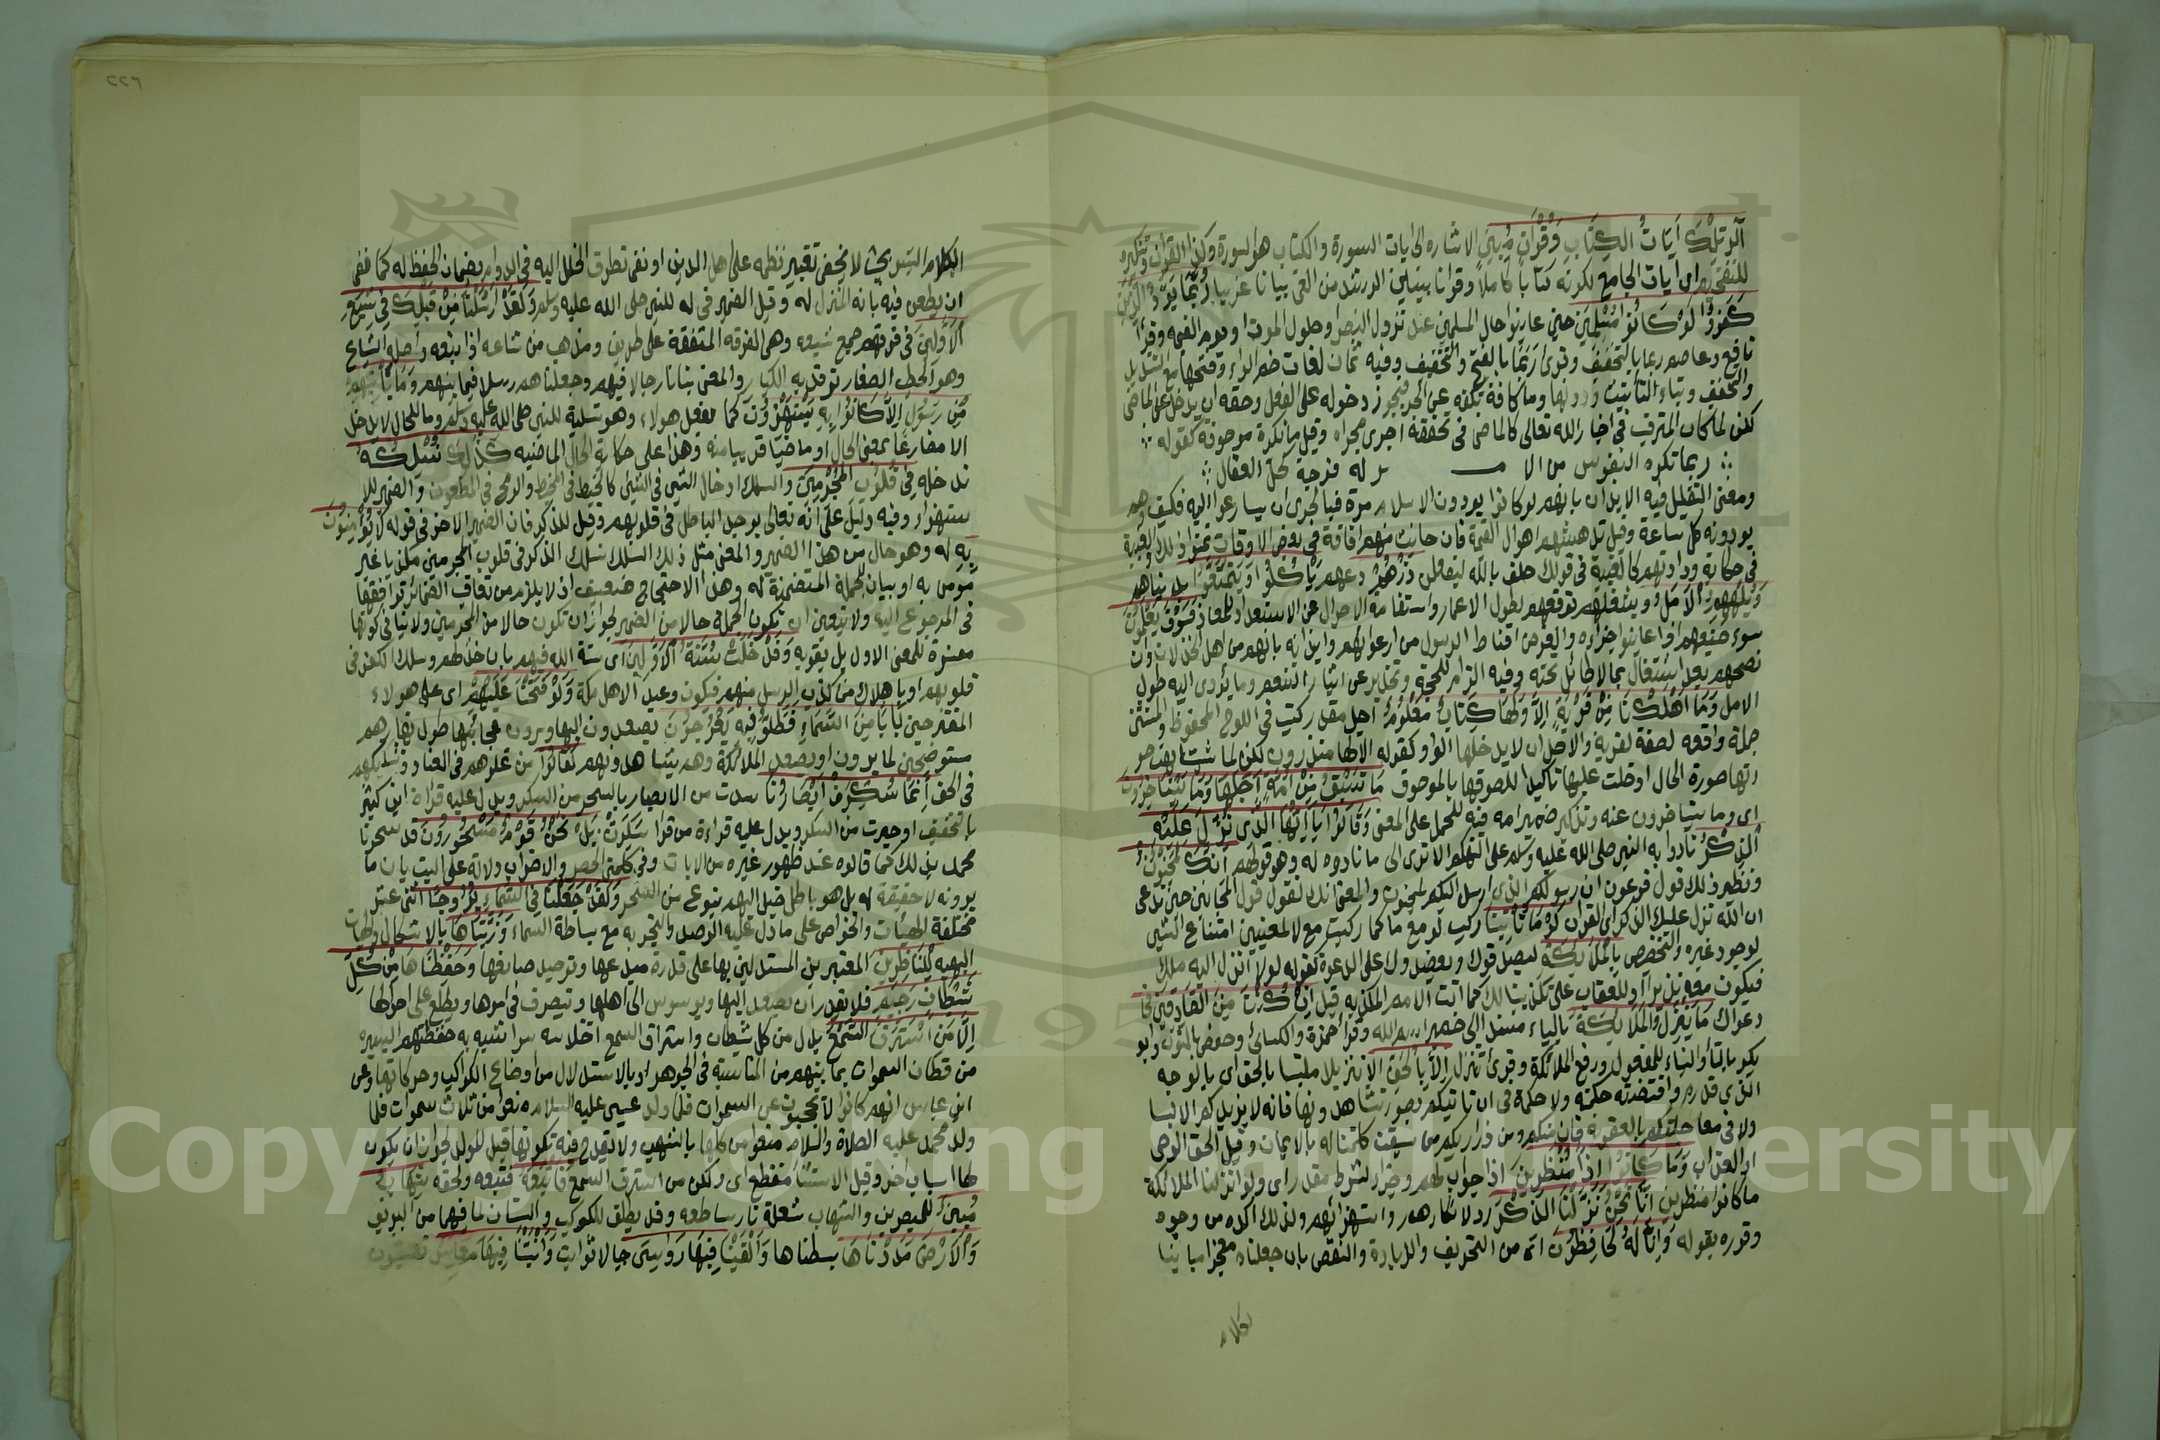 الر تِلْكَ اَيَاتُ الكِتَابِ وَقُرْآنٍ مُبِينٍ الاشاره الى ايات السورة والكتاب هو السورة وكذا القرآن وتنكيره
للتفخيم اى ايات الجامع لكونه كتابا كاملا وقرانا يبين الرشد من الغى بيانا غريبا رُبَمَا يَوَدُّ الَّذِينَ
كَفَرُوا لَوْ كَانُوا مُسْلِمِينَ حين عاينوا حال المسلمين عند نزول النصر او حلول الموت او يوم القيمه وقرأ
نافع وعاصم ربما بالتخفيف وقرئ رَبَمَا بالفتح والتخفيف وفيه ثمان لغات ضم الراء وفتحها مع التشديد
والتخفيف وبتاء التانيث ودونها وما كافة تكفه عن الجر فيجوز دخوله على الفعل وحقه ان يدخل على الماضى
لكن لما كان المترقب فى اخبار الله تعالى كالماضى فى تحققه اجرى مجراه وقيل ما نكرة موصوفة كقوله
ربما تكره النفوس من الا مـــــر له فرجة كحل العقال
ومعنى التقليل فيه الايذان بانهم لو كانوا يودون الاسلام مرة فبالحرى ان يسارعوا اليه فكيف وهم
يودونه كل ساعة وقيل تدهشهم اهوال القيمة فان حانت منهم افاقة فى بعض الاوقات تمنوا ذلك والغيبة
فى حكاية ودادتهم كالغيبة فى قولك حلف بالله ليفعلن ذَرْهُمْ دعهم يَأْكُلُوا وَيَتَمَتَّعُوا بدنياهم
وَيُلْهِهِمُ الْأَمَلُ ويشغلهم توقعهم بطول الاعمار واستقامة الاحوال عن الاستعداد للمعاد فَسَوْفَ يَعْلَمُونَ
سوء صنيعهم اذا عاينوا جزاءه والغرض اقناط الرسول من ارعوائهم وايذانه بانهم من اهل الخذلان وان
نصحهم بعد اشتغال بما لا طائل تحته وفيه الزام للحجة وتحذير عن ايثار التنعم وما يؤدى اليه طول
الامل وَمَا أَهْلَكْنَا مِنْ قَرْيَةٍ إِلَّا وَلَهَا كِتَابٌ مَعْلُومٌ اجل مقدر كتب فى اللوح المحفوظ والمستثنى
جملة واقعه لصفة لقرية والاصل ان لا يدخلها الواو كقوله الا لها منذرون لكن لما شابهت صو
رتها صورة الحال ادخلت عليها تاكيدا للصوقها بالموصوف مَا تَسْبِقُ مِنْ أُمَّةٍ أَجَلَهَا وَمَا يَسْتَأْخِرُونَ
اى وما يستاخرون عنه وتذكير ضمير امه فيه للحمل على المعنى وَقَالُوا يَا أَيُّهَا الَّذِي نُزِّلَ عَلَيْهِ
الذِّكْرُ نادوا به النبى صلى الله عليه وسلم على التهكم الا ترى الى ما نادوه له وهو قولهم اِنَّكَ لَمَجْنُونٌ
ونظير ذلك قول فرعون ان رسولكم الذى ارسل اليكم لمجنون والمعنى انك لتقول قول المجانين حين تدعى
ان الله نزل عليك الذكر اى القران لَوْمَا تَأْتِينَا ركب لو مع ما كما ركبت مع لا لمعنيين امتناع الشئ
لوجود غيره والتحضيض بِالْمَلَائِكَةِ ليصدقوك ويعضدوك على الدعوة لقوله لولا انزل اليه ملك
فيكون معه نذيرا او للعقاب على تكذيبنا لك كما اتت الامم المكذبه قبل اِنْ كُنْتَ مِنَ الصَّادِقِينَ فى
دعواك مَا يُنَزِّلُ الْمَلَائِكَةَ بالياء مسند الى ضمير اسم الله وقرأ حمزة والكسائى وحفص بالنون وابو
بكر بالتاء والبناء للمفعول ورفع الملائكة وقرئ تنزل اِلَّا بِالْحَقِّ الا تنزيلا ملتبسا بالحق اى بالوجه
الذى قدره واقتضته حكمته ولا حكمة فى ان تاتيكم بصور تشاهدونها فانه لا يزيدكم الا لبسا
ولا فى معاجلتكم بالعقوبه فان منكم ومن ذراريكم من سبقت كلمتنا له بالايمان وقيل الحق الوحى
او العذاب وَمَا كَانُوا إِذًا مُنْظَرِينَ اذا جواب لهم وجزاء لشرط مقدر اى ولو انزلنا الملائكة
ما كانوا منظرين اِنَّا نَحْنُ نَزَّلْنَا الذِّكْرَ رد لانكارهم واستهزائهم ولذلك اكده من وجوه
وقرره بقوله وَإِنَّا لَهُ لَحَافِظُونَ اى من التحريف والزيادة والنقص بان جعلناه معجزا مباينا
لكلام
٢٢٦
لكلام البشر بحيث لا يخفى تغيير نظمه على اهل اللسان او نفى تطرق الخلل اليه فى الدوام بضمان الحفظ له كما نفى
ان يطعن فيه بانه المنزل له وقيل الضمير فى له للنبى صلى الله عليه وسلم وَلَقَدْ أَرْسَلْنَا مِنْ قَبْلِكَ فِي شِيَعِ
الْأَوَّلِينَ فى فرقهم جمع شيعه وهى الفرقه المتفقة على طريق ومذهب من شاعه اذا تبعه واصله الشياع
وهو الحطب الصغار توقد به الكبار والمعنى نبأنا رجالا فيهم وجعلناهم رسلا فيما بينهم وَمَا يَأْتِيهِمْ
مِنْ رَسُولٍ إِلَّا كَانُوا بِهِ يَسْتَهْزِؤُنَ كما يفعل هولاء وهو تسلية للنبى صلى الله عليه وسلم وما للحال لا يدخل
الا مضارعا بمعنى الحال او ماضيا قريبا منه وهذا على حكاية الحال الماضيه كَذَلِكَ نَسْلُكُهُ
ندخله فِي قُلُوبِ الْمُجْرِمِينَ والسلك ادخال الشئ فى الشئ كالخيط فى المخيط والرمح فى المطعون والضمير للا
ستهزاء وفيه دليل على انه تعالى يوجد الباطل فى قلوبهم وقيل للذكر فان الضمير الاخر فى قوله لَا يُؤْمِنُونَ
بِهِ له وهو حال من هذا الضمير والمعنى مثل ذلك السلك نسلك الذكر فى قلوب المجرمين مكذبا غير
مؤمن به او بيان للجملة المتضمنة له وهذا الاحتجاج ضعيف اذ لا يلزم من تعاقب الضمائر توافقها
فى المرجوع اليه ولا يتعين ان تكون الجملة حالا من الضمير لجواز ان تكون حالا من المجرمين ولا ينافى كونها
مفسرة للمعنى الاول بل يقويه وَقَدْ خَلَتْ سُنَّةُ الْأَوَّلِينَ اى سنة الله فيهم بان خذلهم وسلك الكفر فى
قلوبهم او باهلاك من كذب الرسل منهم فيكون وعيد الاهل مكة وَلَوْ فَتَحْنَا عَلَيْهِمْ اى على هولاء
المقترحين بَابًا مِنَ السَّمَاءِ فَظَلُّوا فِيهِ يَعْرُجُونَ يصعدون اليها ويرون عجائبها طول نهارهم
مستوضحين لما يرون او تصعد الملائكة وهم يشاهدونهم لَقَالُوا من غلوهم فى العناد وتشكيكهم
فى الحق اِنَّمَا سُكِّرَتْ أَبْصَارُنَا سدت من الابصار بالسحر من السكر ويدل عليه قراءة ابن كثير
بالتخفيف او حيرت من السكر ويدل عليه قراءة من قرا سَكِرَتْ بَلْ نَحْنُ قَوْمٌ مَسْحُورُونَ قد سحرنا
محمد بذلك كما قالوه عند ظهور غيره من الايات وفى كلمتى الحصر والاضراب دلالة على البت بان ما
يرونه لا حقيقة له بل هو باطل خيل اليهم بنوع من السحر وَلَقَدْ جَعَلْنَا فِي السَّمَاءِ بُرُوجًا اثنى عشر
مختلفة الهيئات والخواص على ما دل عليه الرصد والتجربه مع بساطة السماء وَزَيَّنَّاهَا بالاشكال والهيات
البهيه لِلنَّاظِرِينَ المعتبرين المستدلين بها على قدرة مبدعها وتوحيد صانعها وَحَفِظْنَاهَا مِنْ كُلِّ
شَيْطَانٍ رَجِيمٍ فلا يقدر ان يصعد اليها ويوسوس الى اهلها ويتصرف فى امرها ويطلع على احوالها
اِلَّا مَنِ اسْتَرَقَ السَّمْعَ بدل من كل شيطان واستراق السمع اختلاسه سرا شبه به خطفتهم اليسيره
من قطان السموات بما بينهم من المناسبة فى الجوهر او بالاستدلال من اوضاع الكواكب وحركاتها وعن
ابن عباس انهم كانوا لا يحجبون عن السموات فلما ولد عيسى عليه السلام منعوا من ثلاث سموات فلما
ولد محمد عليه الصلاة والسلام منعوا من كلها بالشهب ولا يقدح فيه تكونها قبل المولد لجواز ان يكون
لها اسباب اخر وقيل الاستثنا منقطع اى ولكن من استرق السمع فَأَتْبَعَهُ فتبعه ولحقه شِهَابٌ
مُبِينٌ للمبصرين والشهاب شعلة نار ساطعه وقد يطلق للكوكب والسنان لما فيهما من البريق
وَالْأَرْضَ مَدَدْنَاهَا بسطناها وَأَلْقَيْنَا فِيهَا رَوَاسِيَ جبالا ثوابت وَأَنْبَتْنَا فِيهَا
Copyright © King Saud University
1957